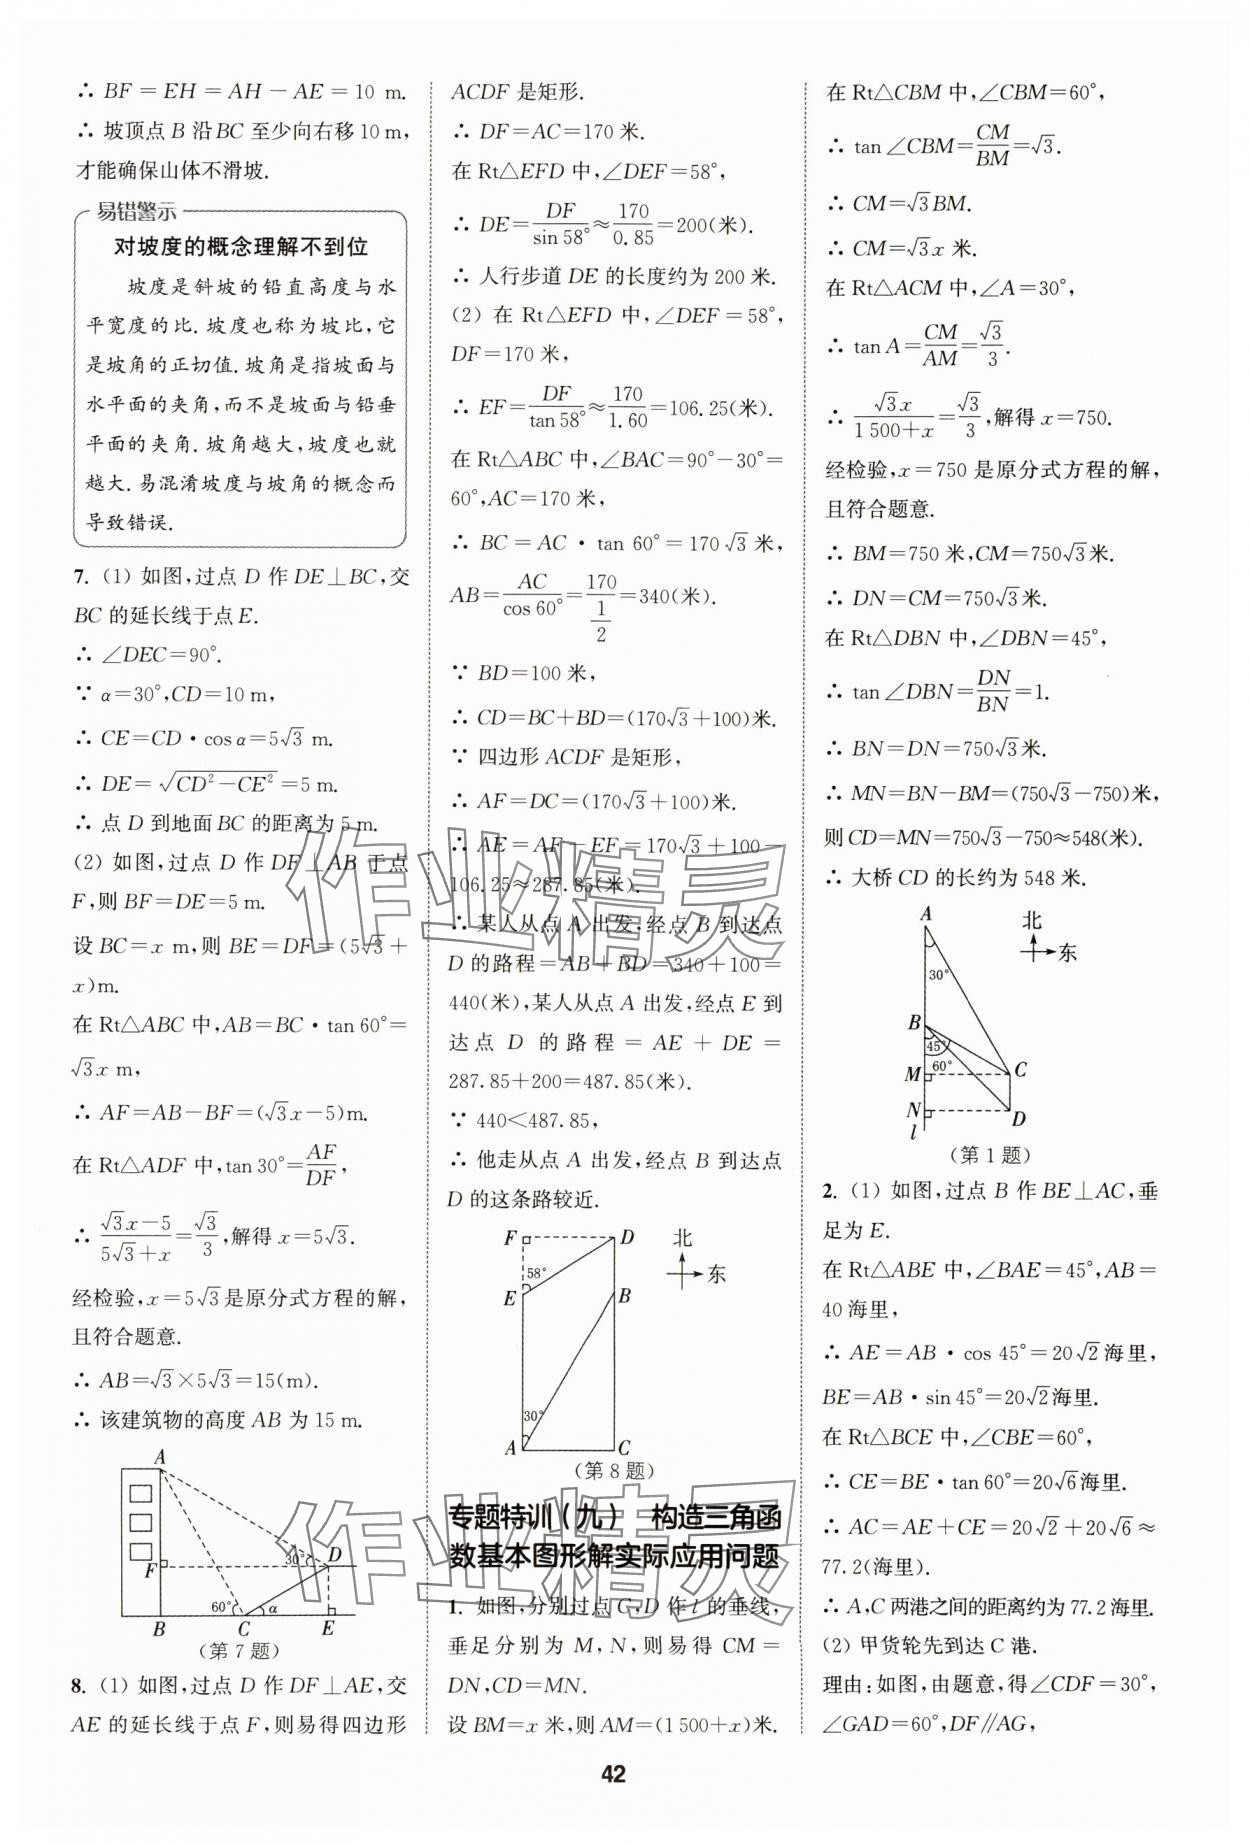 ∴ BF=EH=AH-AE=10 m.
∴ 坡顶点 B 沿 BC 至少向右移 10 m,
才能确保山体不滑坡.
易错警示
对坡度的概念理解不到位
坡度是斜坡的铅直高度与水
平宽度的比. 坡度也称为坡比,它
是坡角的正切值. 坡角是指坡面与
水平面的夹角,而不是坡面与铅垂
平面的夹角. 坡角越大,坡度也就
越大. 易混淆坡度与坡角的概念而
导致错误.
7. (1) 如图,过点 D 作 DE⊥BC,交
BC 的延长线于点 E.
∴ ∠DEC=90°.
∵ α=30°,CD=10 m,
∴ CE=CD·cos α=5√3 m.
∴ DE=√(CD²-CE²)=5 m.
∴ 点 D 到地面 BC 的距离为 5 m.
(2) 如图,过点 D 作 DF⊥AB 于点
F,则 BF=DE=5 m.
设 BC=x m,则 BE=DF=(5√3+
x)m.
在 Rt△ABC 中,AB=BC·tan 60°=
√3x m,
∴ AF=AB-BF=(√3x-5)m.
在 Rt△ADF 中,tan 30°=AF/DF,
∴ (√3x-5)/(5√3+x)=√3/3,解得 x=5√3.
经检验,x=5√3是原分式方程的解,
且符合题意.
∴ AB=√3×5√3=15(m).
∴ 该建筑物的高度 AB 为 15 m.
A
F
30°
D
60°
α
B C E
(第 7 题)
8. (1) 如图,过点 D 作 DF⊥AE,交
AE 的延长线于点 F,则易得四边形
ACDF 是矩形.
∴ DF=AC=170 米.
在 Rt△EFD 中,∠DEF=58°,
∴ DE=DF/sin 58°≈170/0.85=200(米).
∴ 人行步道 DE 的长度约为 200 米.
(2) 在 Rt△EFD 中,∠DEF=58°,
DF=170 米,
∴ EF=DF/tan 58°≈170/1.60=106.25(米).
在 Rt△ABC 中,∠BAC=90°-30°=
60°,AC=170 米,
∴ BC=AC·tan 60°=170√3 米,
AB=AC/cos 60°=170/(1/2)=340(米).
∵ BD=100 米,
∴ CD=BC+BD=(170√3+100)米.
∵ 四边形 ACDF 是矩形,
∴ AF=DC=(170√3+100)米.
∴ AE=AF-EF=170√3+100-
106.25≈287.85(米).
∴ 某人从点 A 出发,经点 B 到达点
D 的路程=AB+BD=340+100=
440(米),某人从点 A 出发,经点 E 到
达点 D 的路程=AE+DE=
287.85+200=487.85(米).
∵ 440<487.85,
∴ 他走从点 A 出发,经点 B 到达点
D 的这条路较近.
F D 北
58°
东
E B
30°
A C
(第 8 题)
专题特训(九) 构造三角函
数基本图形解实际应用问题
1. 如图,分别过点 C,D 作 l 的垂线,
垂足分别为 M,N,则易得 CM=
DN,CD=MN.
设 BM=x 米,则 AM=(1 500+x)米.
在 Rt△CBM 中,∠CBM=60°,
∴ tan∠CBM=CM/BM=√3.
∴ CM=√3BM.
∴ CM=√3x 米.
在 Rt△ACM 中,∠A=30°,
∴ tan A=CM/AM=√3/3.
∴ √3x/(1 500+x)=√3/3,解得 x=750.
经检验,x=750 是原分式方程的解,
且符合题意.
∴ BM=750 米,CM=750√3米.
∴ DN=CM=750√3米.
在 Rt△DBN 中,∠DBN=45°,
∴ tan∠DBN=DN/BN=1.
∴ BN=DN=750√3米.
∴ MN=BN-BM=(750√3-750)米,
则 CD=MN=750√3-750≈548(米).
∴ 大桥 CD 的长约为 548 米.
A 北
东
30°
B
45°
60°
M C
N D
l
(第 1 题)
2. (1) 如图,过点 B 作 BE⊥AC,垂
足为 E.
在 Rt△ABE 中,∠BAE=45°,AB=
40 海里,
∴ AE=AB·cos 45°=20√2海里,
BE=AB·sin 45°=20√2海里.
在 Rt△BCE 中,∠CBE=60°,
∴ CE=BE·tan 60°=20√6海里.
∴ AC=AE+CE=20√2+20√6≈
77.2(海里).
∴ A,C 两港之间的距离约为 77.2 海里.
(2) 甲货轮先到达 C 港.
理由:如图,由题意,得∠CDF=30°,
∠GAD=60°,DF∥AG,
42
作业精灵
作业精灵